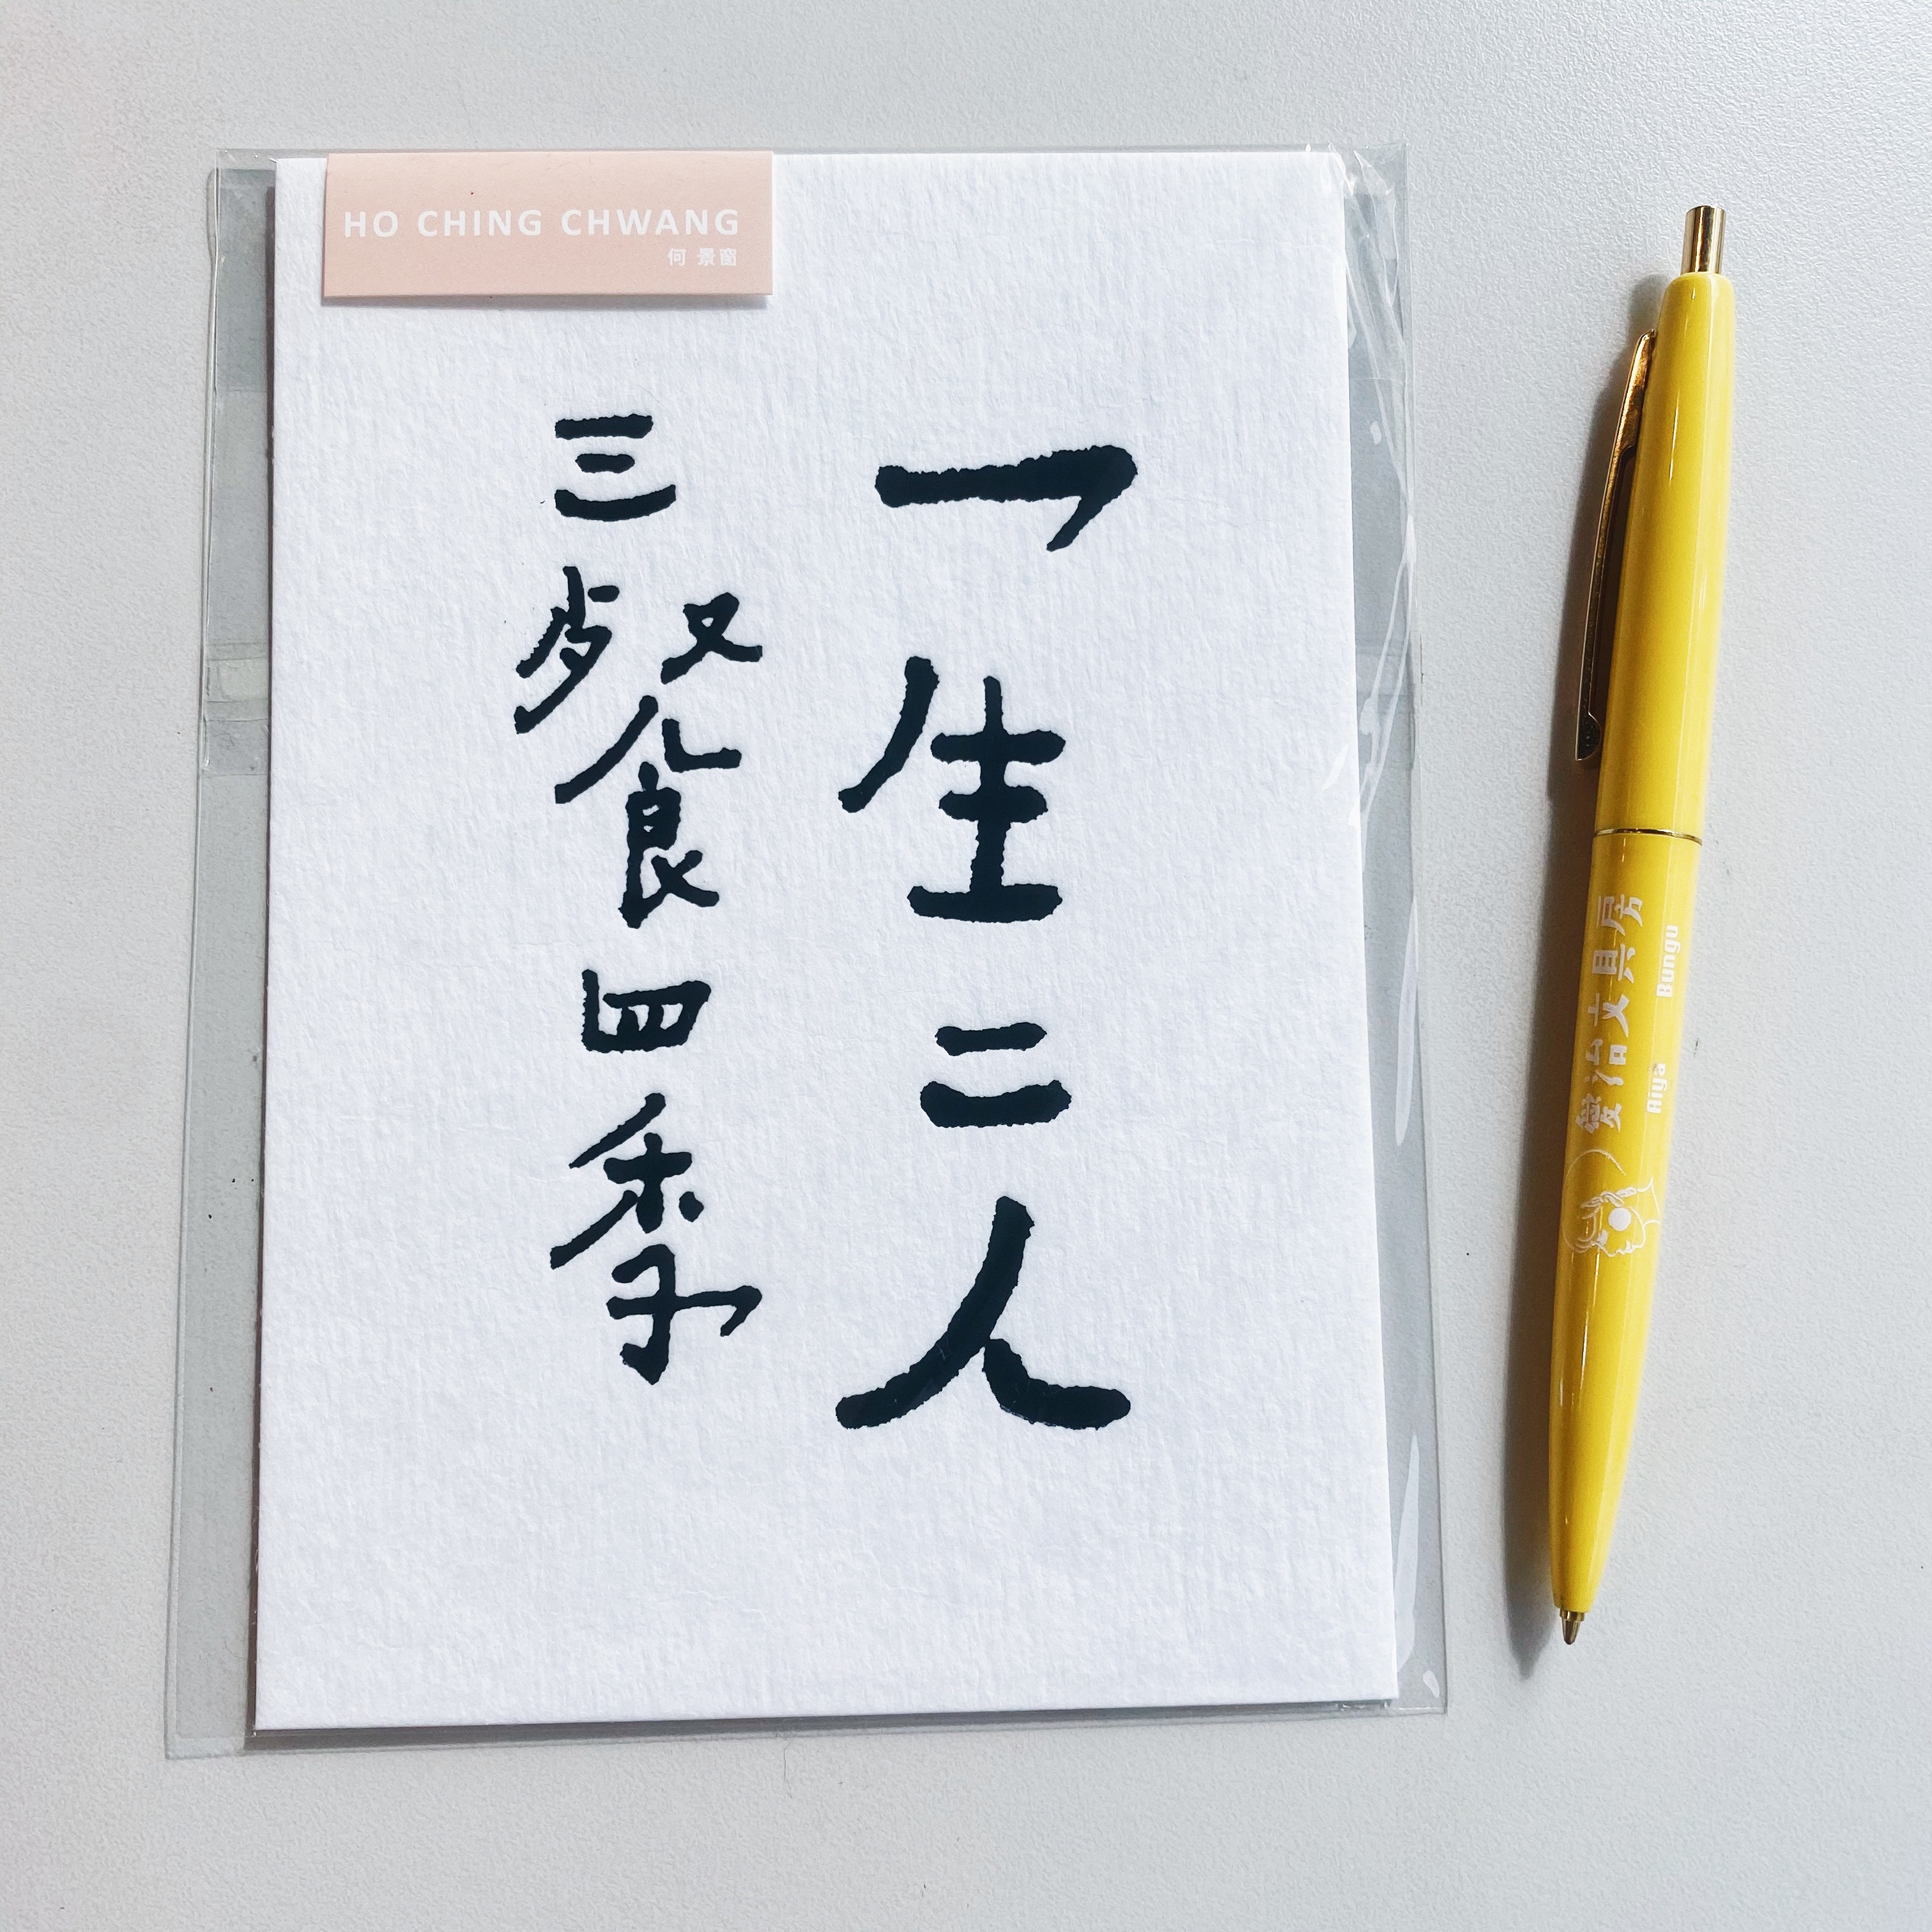 HO CHING CHWANG
何 景窗
一生二人
三餐四季
愛治文具房
Aiya Bungu